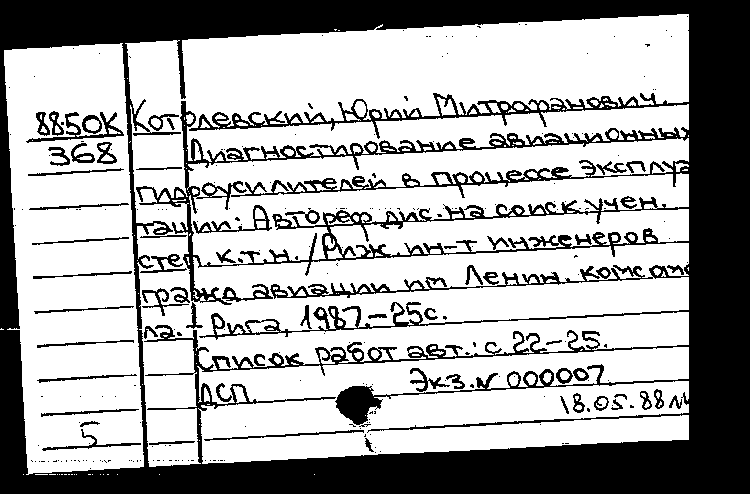 88.50К Котолевский, Юрий Митрофанович.
368 Диагностирование авиационных
гидроусилителей в процессе эксплуа
тации: Автореф. дис. на соиск. учен.
степ. к.т.н. / Риж. ин-т инженеров
гражд авиации им Ленин. комсомо
ла. - Рига, 1987. - 25с.
Список работ авт.: с. 22-25.
ДСП. Экз. № 000007
18.05.88
5